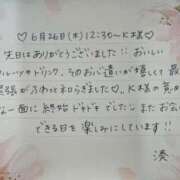 ♡6月26日(木)12:30〜K様♡
先日はありがとうございました!! おいしい
フルーツやドリンク、そのお心遣いが嬉しくて最
緊張がふわっと和らぎました♡ K様の意外
な一面に終始ドキドキでした
できる日を楽しみにしています!!
湊